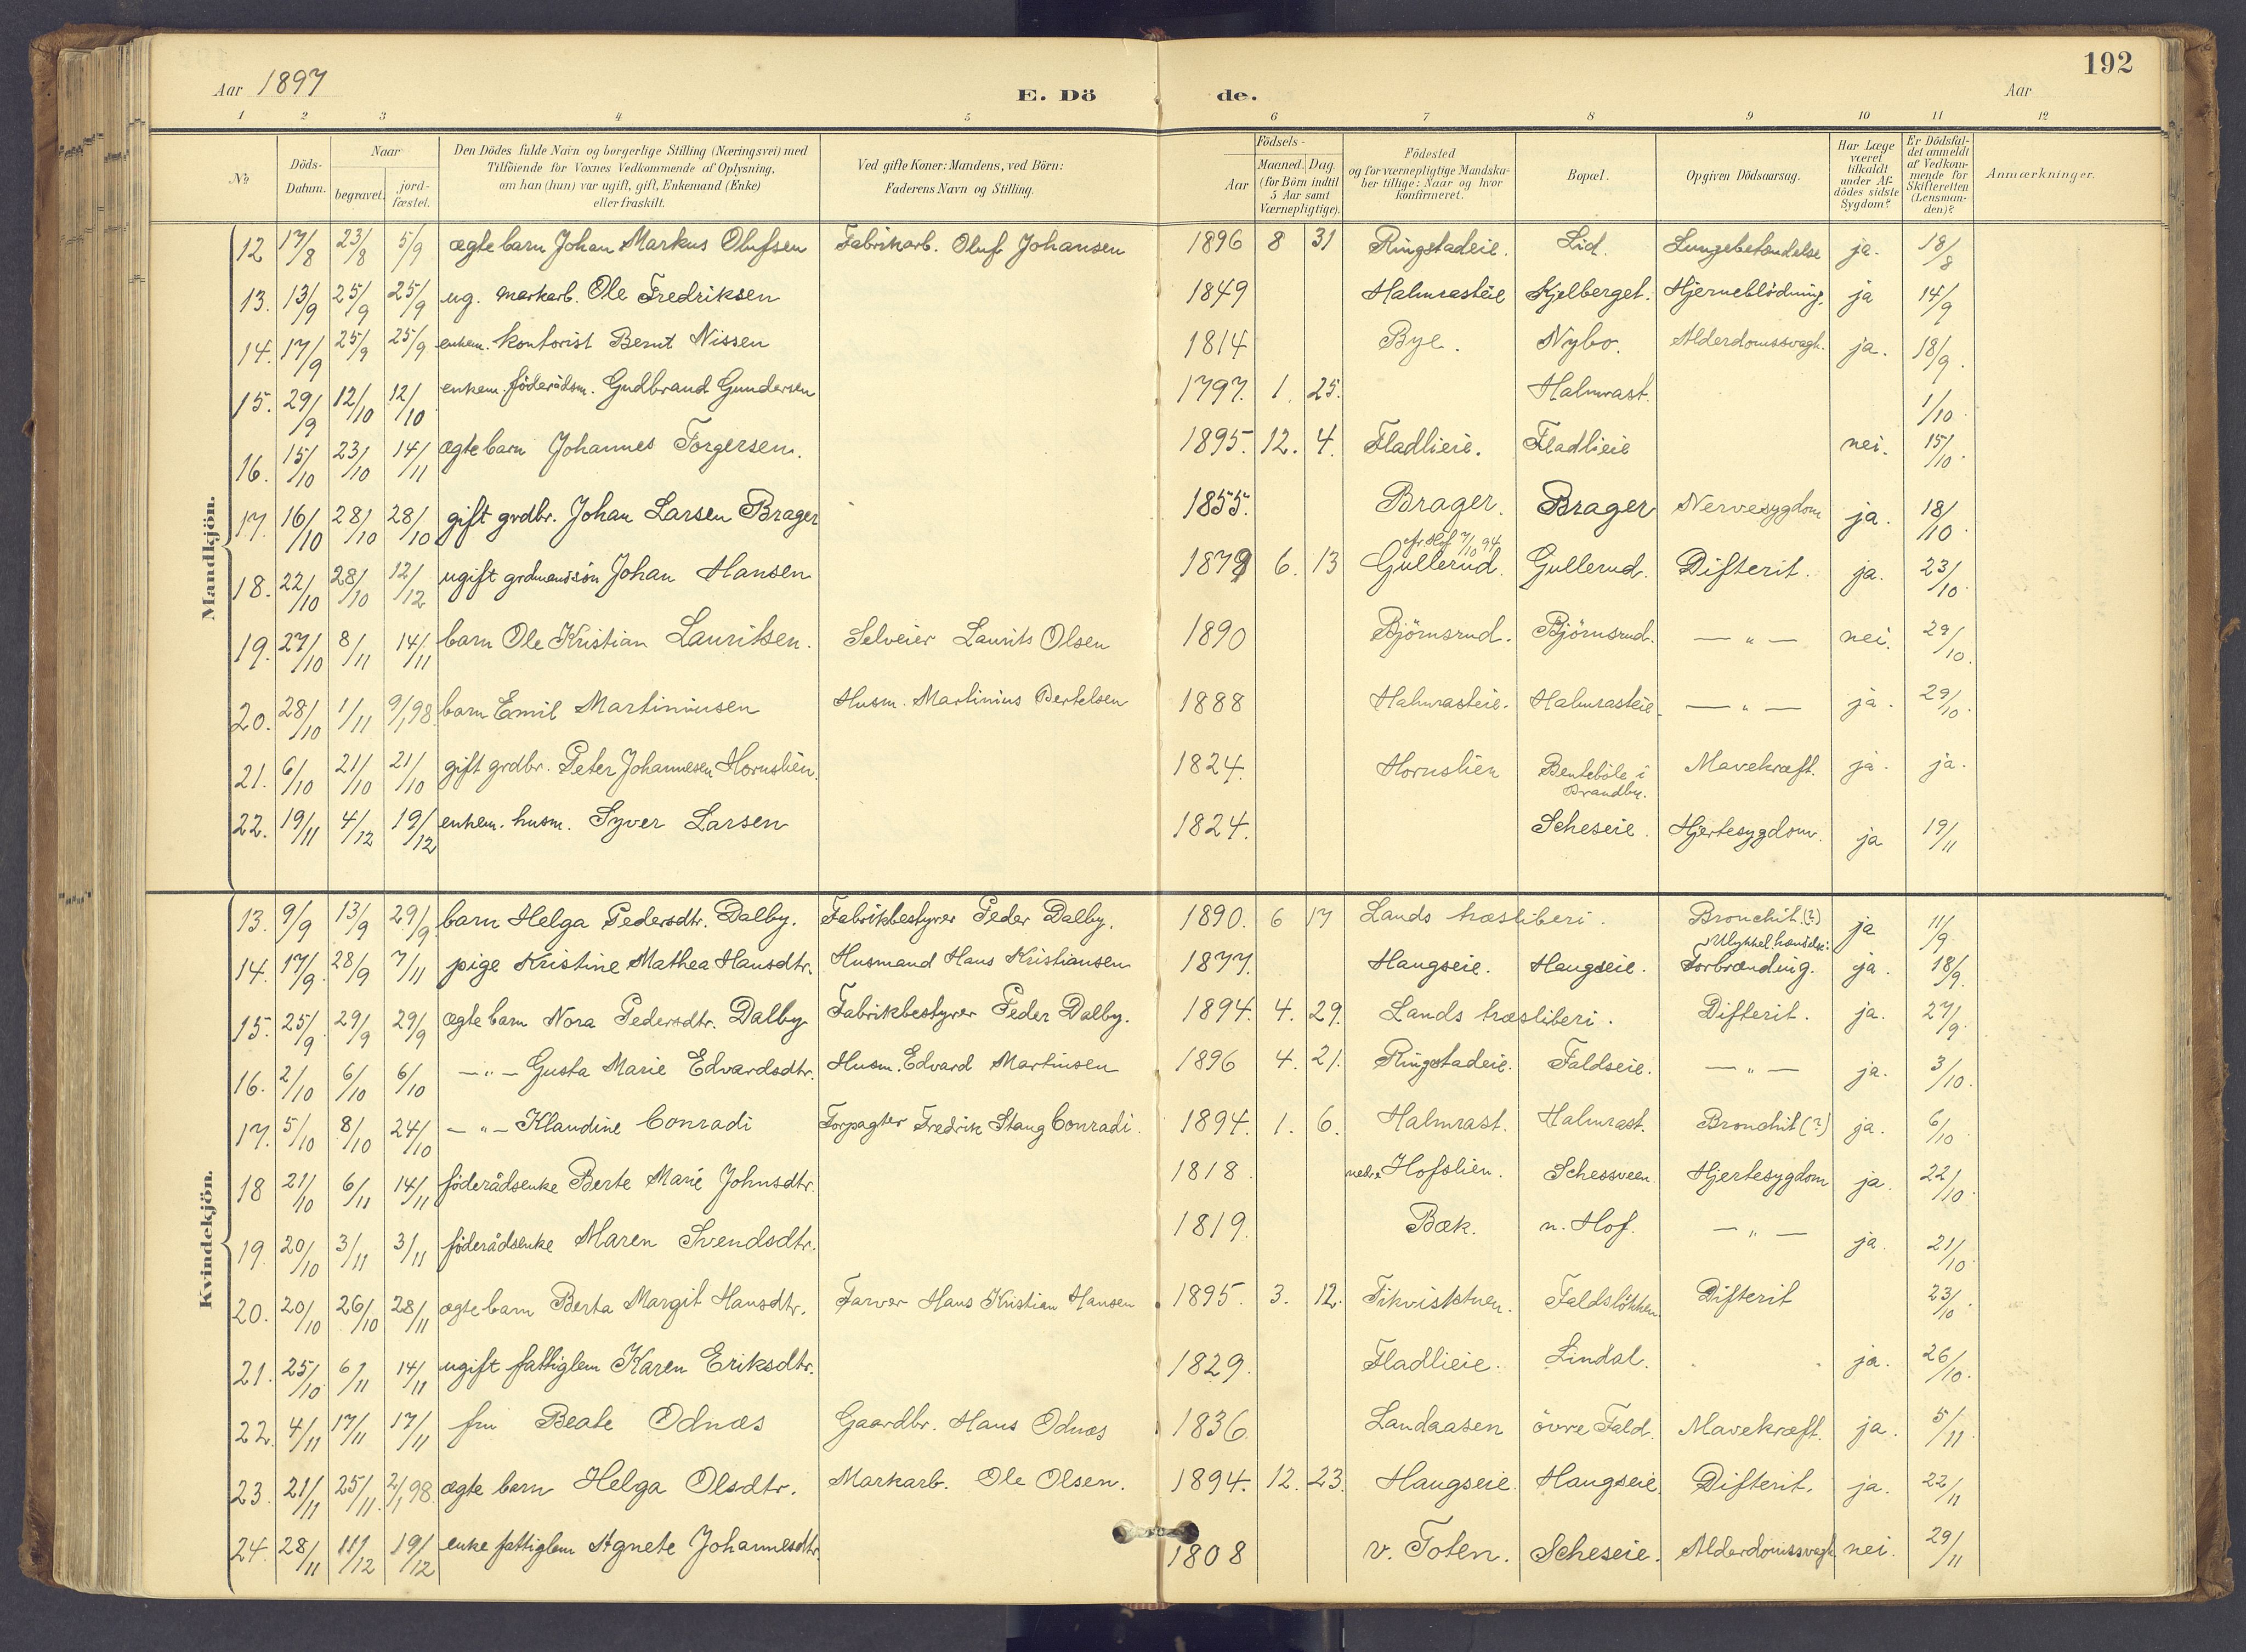 192
Aar 1897 E. Dö de. Aar
1 2 3 4 5 6 7 8 9 10 11 12
No Döds-Datum. Naar begravet. jordfæstet. Den Dödes fulde Navn og borgerlige Stilling (Næringsvei) med Tilföiende for Voxnes Vedkommende af Oplysning, om han (hun) var ugift, gift, Enkemand (Enke) eller fraskilt. Ved gifte Koner: Mandens, ved Börn: Faderens Navn og Stilling. Födsels- Aar Maaned. Dag. (for Börn indtil 5 Aar samt Værnepligtige). Födested og for værnepligtige Mandskaber tillige: Naar og hvor konfirmeret. Bopæl. Opgiven Dödsaarsag. Har Læge været tilkaldt under Afdödes sidste Sygdom? Er Dödsfaldet anmeldt af Vedkommende for Skifteretten (Lensmanden)? Anmærkninger.
Mandkjön.
12 17/8 23/8 5/9 ægte barn Johan Markus Olufsen Fabrikarb. Oluf Johansen 1896 8 31 Ringstadeie. Lid. Lungebetændelse ja. 18/8
13. 13/9 25/9 25/9 ug. markarb. Ole Fredriksen 1849 Halmrasteie Kjelberget. Hjerneblödning. ja 14/9
14. 17/9 25/9 25/9 enkem. kontorist Bernt Nissen 1814 Bye. Nybo. Alderdomssvagh. ja. 18/9.
15. 29/9 12/10 12/10 enkem. föderådsm. Gudbrand Gundersen 1797. 1. 25. Halmrast. 1/10.
16. 15/10 23/10 14/11 ægte barn Johannes Torgersen. 1895. 12. 4. Fladlieie. Fladlieie nei. 15/10.
17. 16/10 28/10 28/10 gift grdbr. Johan Larsen Brager 1855. Brager. Brager Nervesygdom ja. 18/10.
18. 22/10 28/10 12/12 ugift grdmandssön Johan Hansen 1879 6. 13 Gullerud. Hof 7/10 94 Gullerud. Difterit. ja. 23/10.
19. 27/10 8/11 14/11 barn Ole Kristian Lauritsen. Selveier Laurits Olsen 1890 Björnsrud. Björnsrud. — " — nei. 29/10.
20. 28/10 1/11 9/1 98. barn Emil Martiniusen Husm. Martinius Bertelsen 1888 Halmrasteie. Halmrasteie. — " — ja. 29/10.
21. 6/10 21/10 21/10 gift grdbr. Peter Johannesen Hornslien. 1824. Hornslien Benteböle i Brandbu. Mavekræft. ja. ja.
22. 19/11 4/12 19/12 enkem. husm. Syver Larsen 1824. Scheseie. Hjertesygdom. ja 19/11
Kvindekjön.
13. 9/9 13/9 29/9 barn Helga Pedersdtr. Dalby. Fabrikbestyrer Peder Dalby. 1890. 6 17 Lands træsliberi. Bronchit. (?) ja 11/9
14. 17/9. 28/9 7/11 pige Kristine Mathea Hansdtr. Husmand Hans Kristiansen 1877. Haugseie. Haugseie. Ulykkel. hændelse: Forbrænding. ja. 18/9.
15. 25/9 29/9 29/9 ægte barn Nora Pedersdtr. Dalby Fabrikbestyrer Peder Dalby. 1894. 4. 29. Lands træsliberi. Difterit. ja. 27/9.
16. 2/10 6/10 6/10 — " — Gusta Marie Edvardsdtr. Husm. Edvard Martinsen 1896 4. 21. Ringstadeie. Faldseie. — " — ja. 3/10.
17. 5/10 8/10 24/10 — " — Klaudine Conradi Forpagter Fredrik Stang Conradi. 1894. 1. 6. Halmrast. Halmrast. Bronchit (?) ja. 6/10
18 21/10 6/11 14/11 föderådsenke Berte Marie Johnsdtr. 1818. nedre Hofslien. Schessveen. Hjertesygdom ja. 22/10.
19. 20/10 3/11 3/11 föderådsenke Maren Svendsdtr. 1819. Bæk. n. Hof. — " — ja. 21/10.
20. 20/10 26/10 28/11 ægte barn Berta Margit Hansdtr. Farver Hans Kristian Hansen 1895. 3. 12. Faldslökken Difterit 23/10.
21. 25/10 6/11 14/11 ugift fattiglem Karen Eriksdtr. 1829. Fladlieie. Lindal. ja. 26/10.
22. 4/11 17/11 17/11 fru Beate Odnæs Gaardbr. Hans Odnæs 1836. Landaasen övre Fald. Mavekræft. ja. 5/11.
23. 21/11 25/11. 2/1 98. ægte barn Helga Olsdtr. Markarb. Ole Olsen. 1894. 12. 23. Haugseie. Haugseie. Difterit. ja. 22/11
24. 28/11 11/12 19/12 enke fattiglem Agnete Johannesdtr. 1808 v. Toten. Scheseie. Alderdomssvagh. nei. 29/11